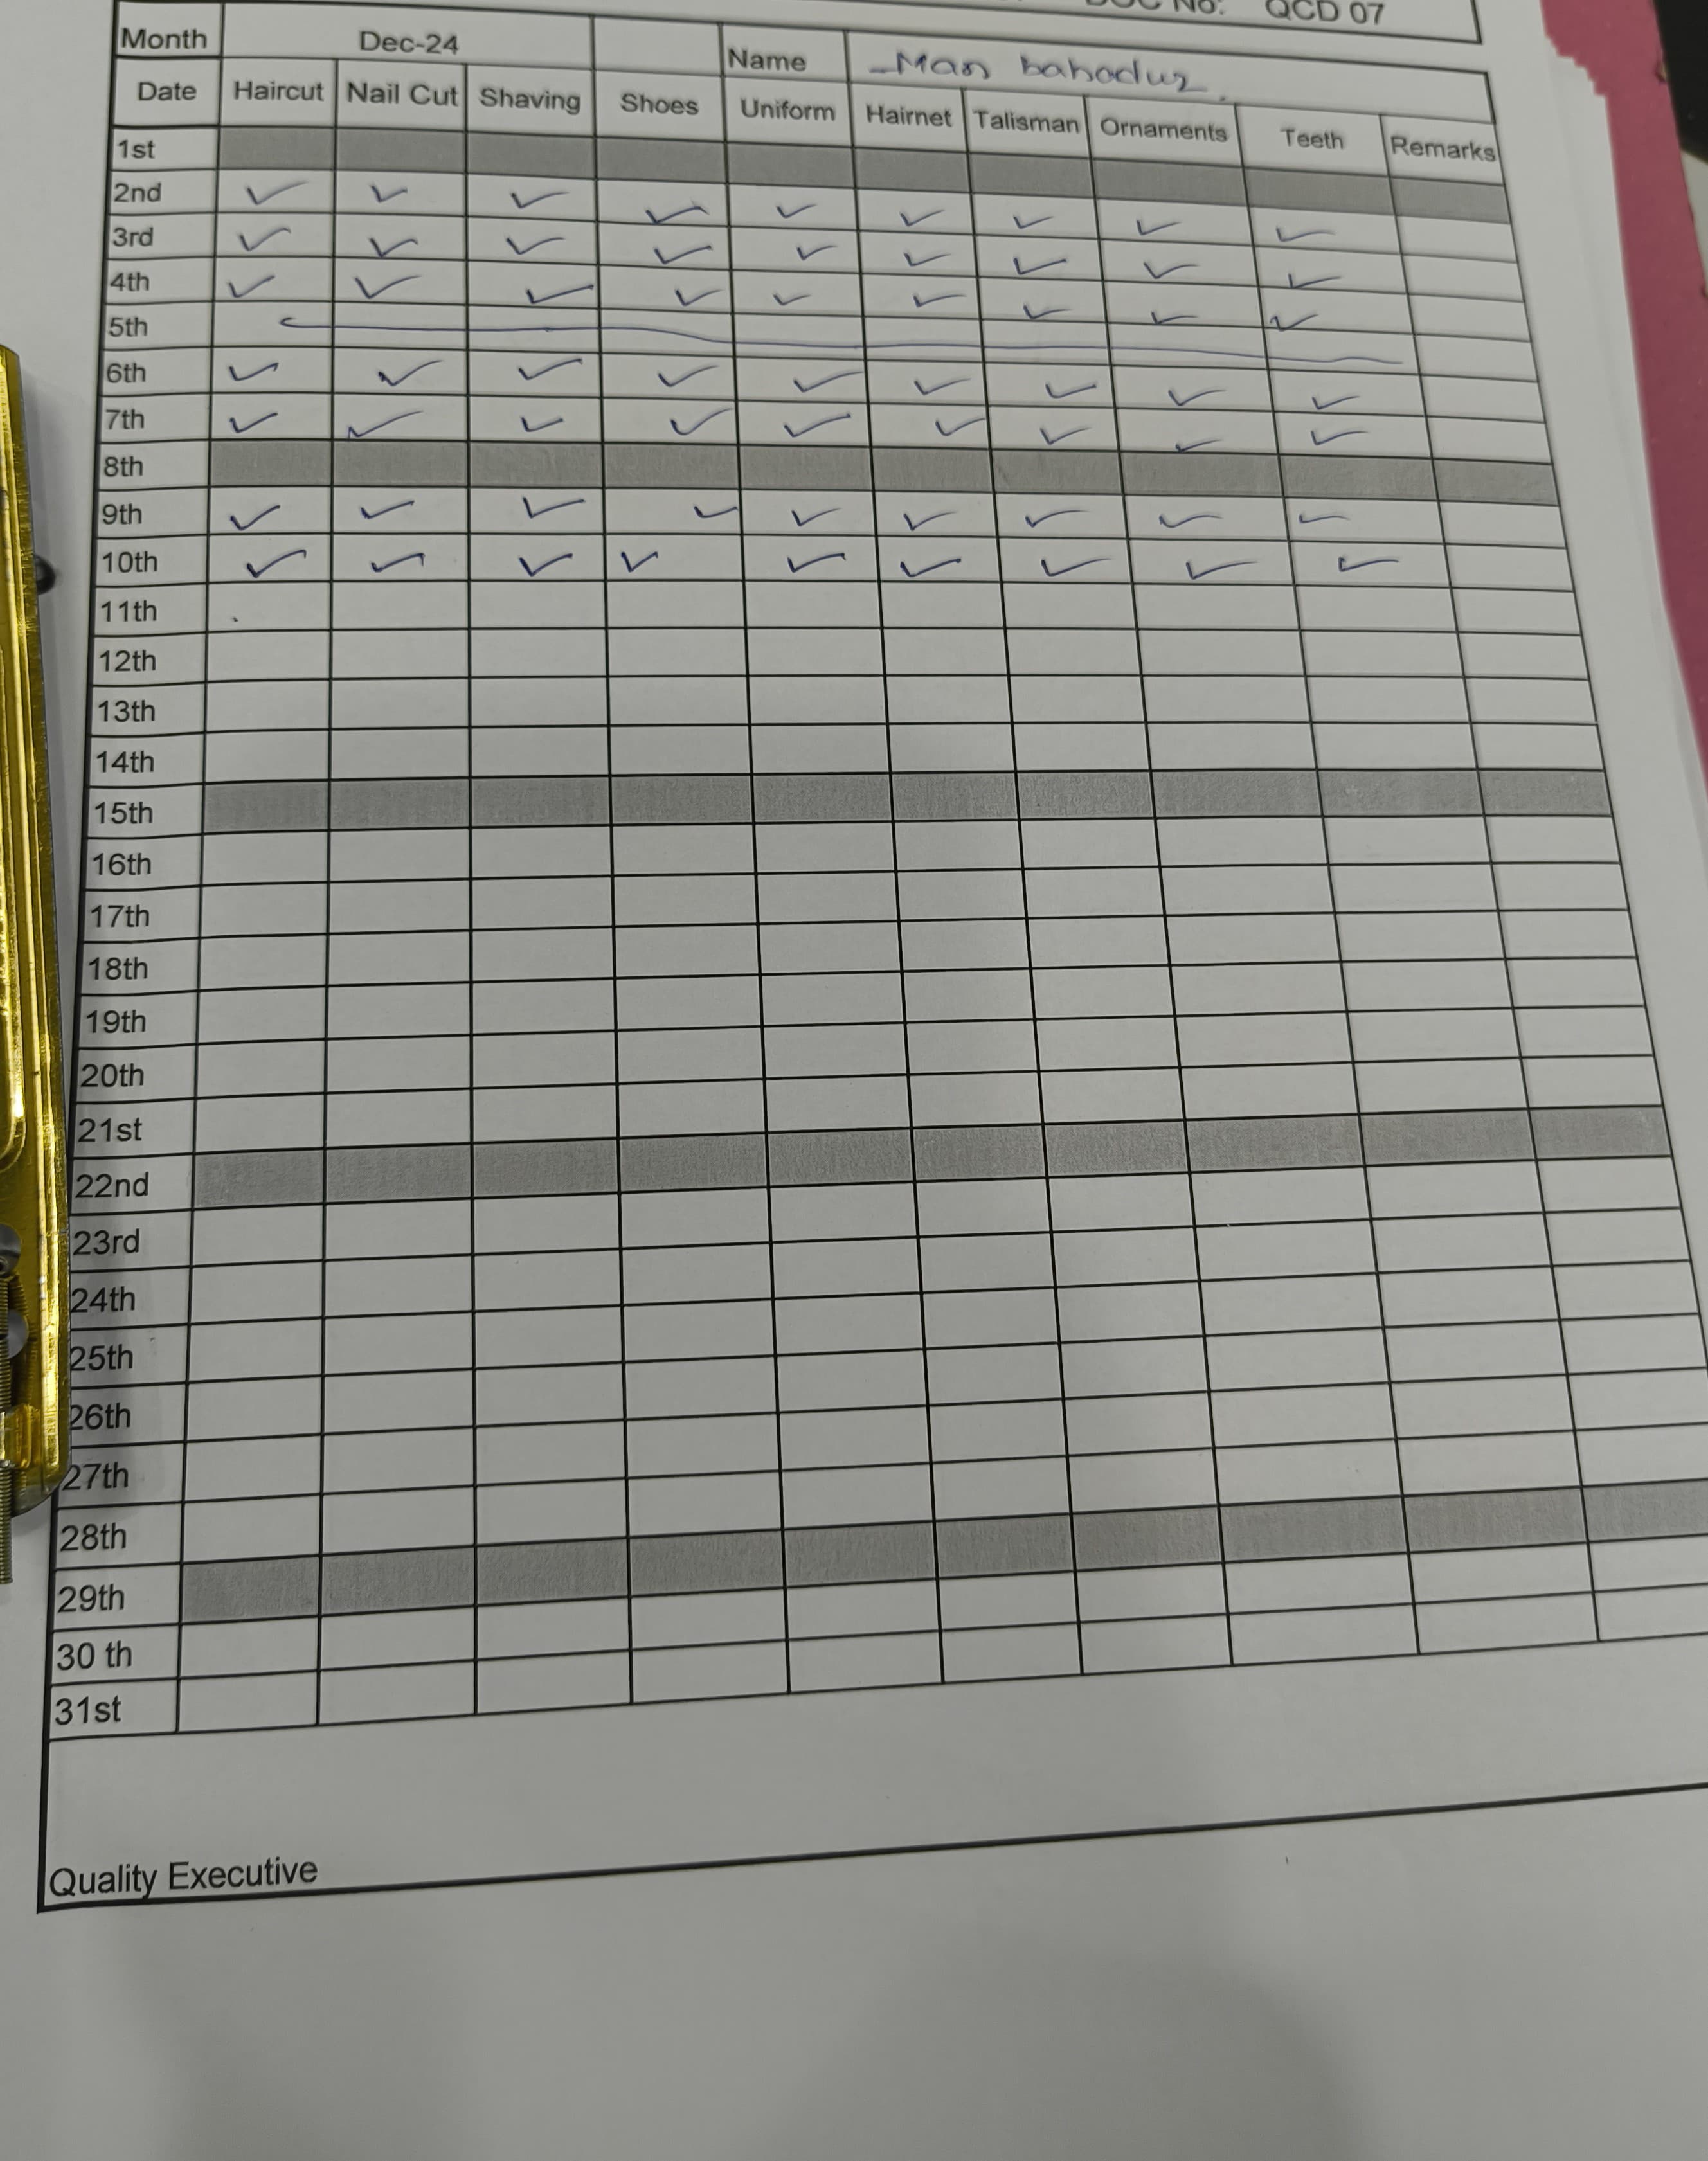 DOC No: QCD 07
Month Dec-24 Name Man bahadur
Date Haircut Nail Cut Shaving Shoes Uniform Hairnet Talisman Ornaments Teeth Remarks
1st
2nd ✓ ✓ ✓ ✓ ✓ ✓ ✓ ✓ ✓
3rd ✓ ✓ ✓ ✓ ✓ ✓ ✓ ✓ ✓
4th ✓ ✓ ✓ ✓ ✓ ✓ ✓ ✓ ✓
5th
6th ✓ ✓ ✓ ✓ ✓ ✓ ✓ ✓ ✓
7th ✓ ✓ ✓ ✓ ✓ ✓ ✓ ✓ ✓
8th
9th ✓ ✓ ✓ ✓ ✓ ✓ ✓ ✓ ✓
10th ✓ ✓ ✓ ✓ ✓ ✓ ✓ ✓ ✓
11th
12th
13th
14th
15th
16th
17th
18th
19th
20th
21st
22nd
23rd
24th
25th
26th
27th
28th
29th
30 th
31st
Quality Executive